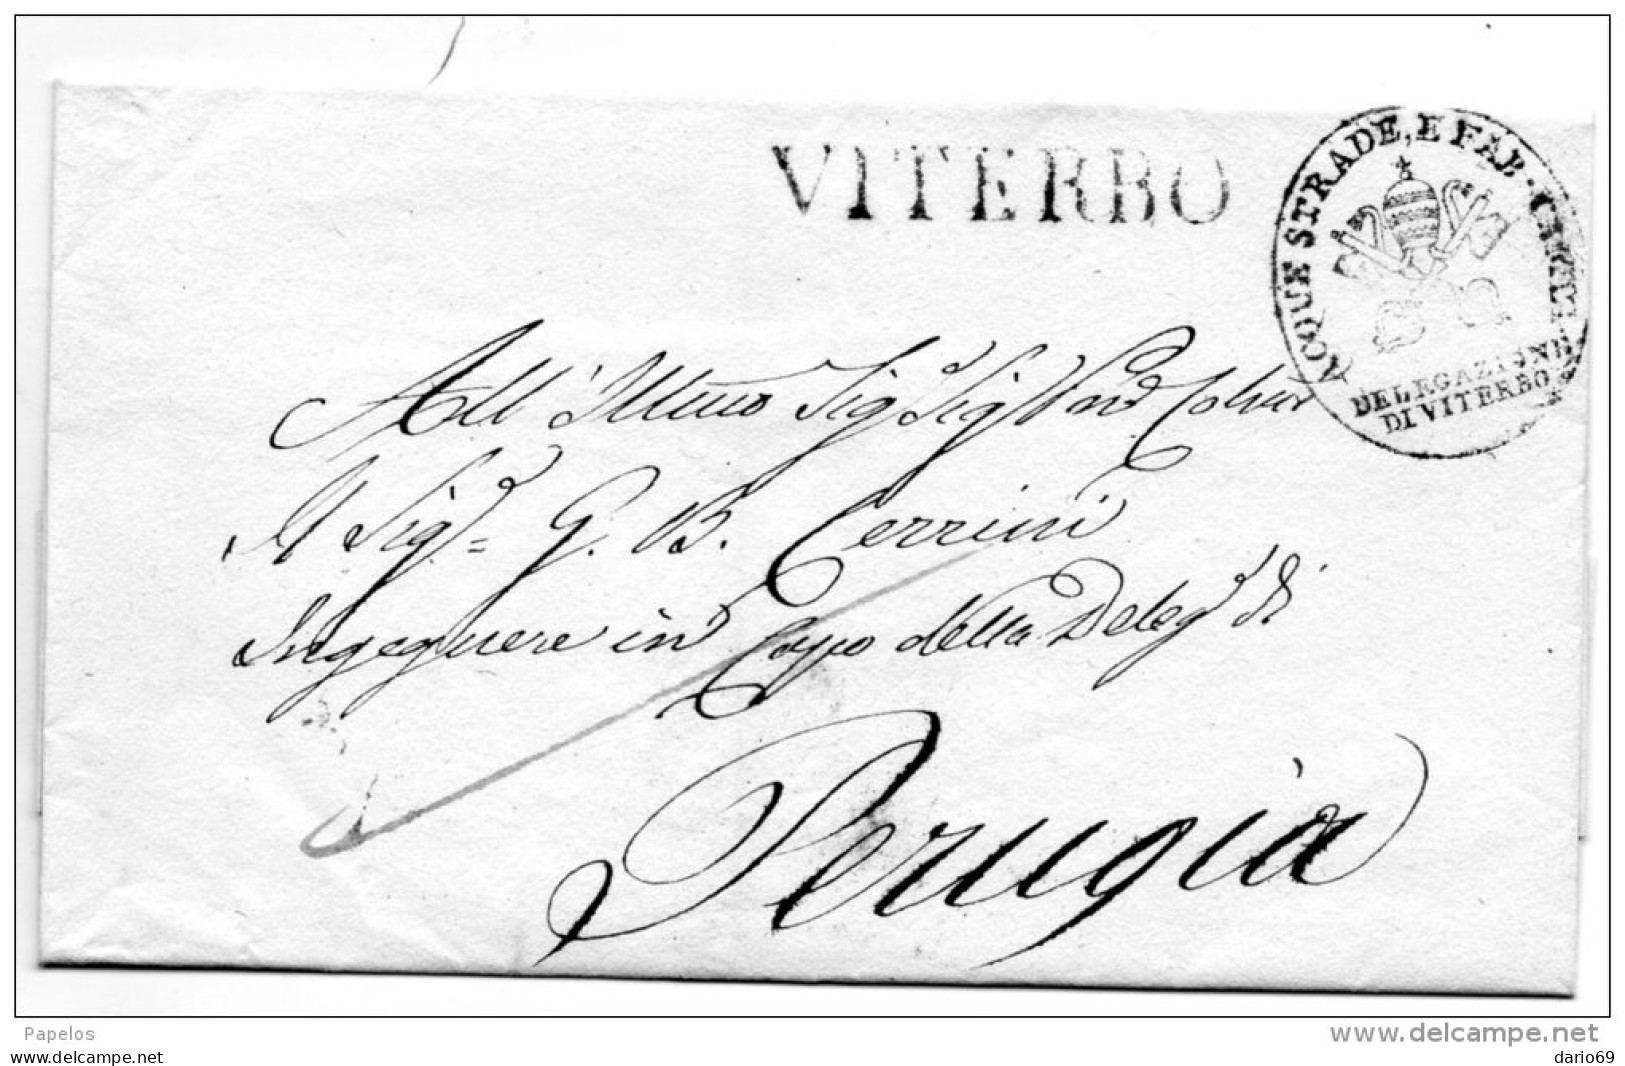 VITERBO
ACQUE STRADE, E FAB. CAM.
DELEGAZIONE
DI VITERBO
All' Illmo Sig Sig Pne Colmo
Il Sig. G. B. Cerrini
Ingegnere in Capo della Deleg. di
Perugia
Papelos
www.delcampe.net
www.delcampe.com
dario69